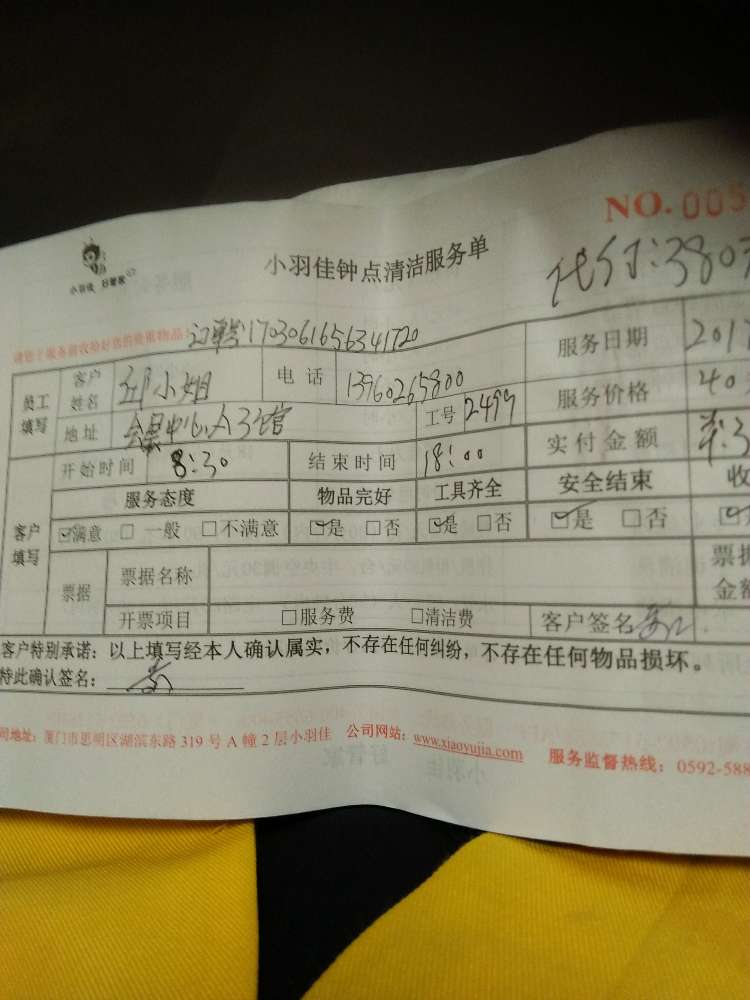 NO.005
小羽佳 好管家
小羽佳钟点清洁服务单
代付:380元
请您于服务前收拾好您的贵重物品:
订单号1703061656341720
员工填写 客户姓名 邱小姐 电话 13960265800 服务日期 201
地址 会展中心 工号 2499 服务价格 40
实付金额
客户填写 开始时间 8:30 结束时间 18:00
服务态度 物品完好 工具齐全 安全结束 收
☑满意 □一般 □不满意 ☑是 □否 ☑是 □否 ☑是 □否
票据 票据名称 票据金额
开票项目 □服务费 □清洁费 客户签名
客户特别承诺:以上填写经本人确认属实,不存在任何纠纷,不存在任何物品损坏。
特此确认签名:
司地址:厦门市思明区湖滨东路 319 号 A 幢 2 层小羽佳 公司网站:www.xiaoyujia.com 服务监督热线:0592-588